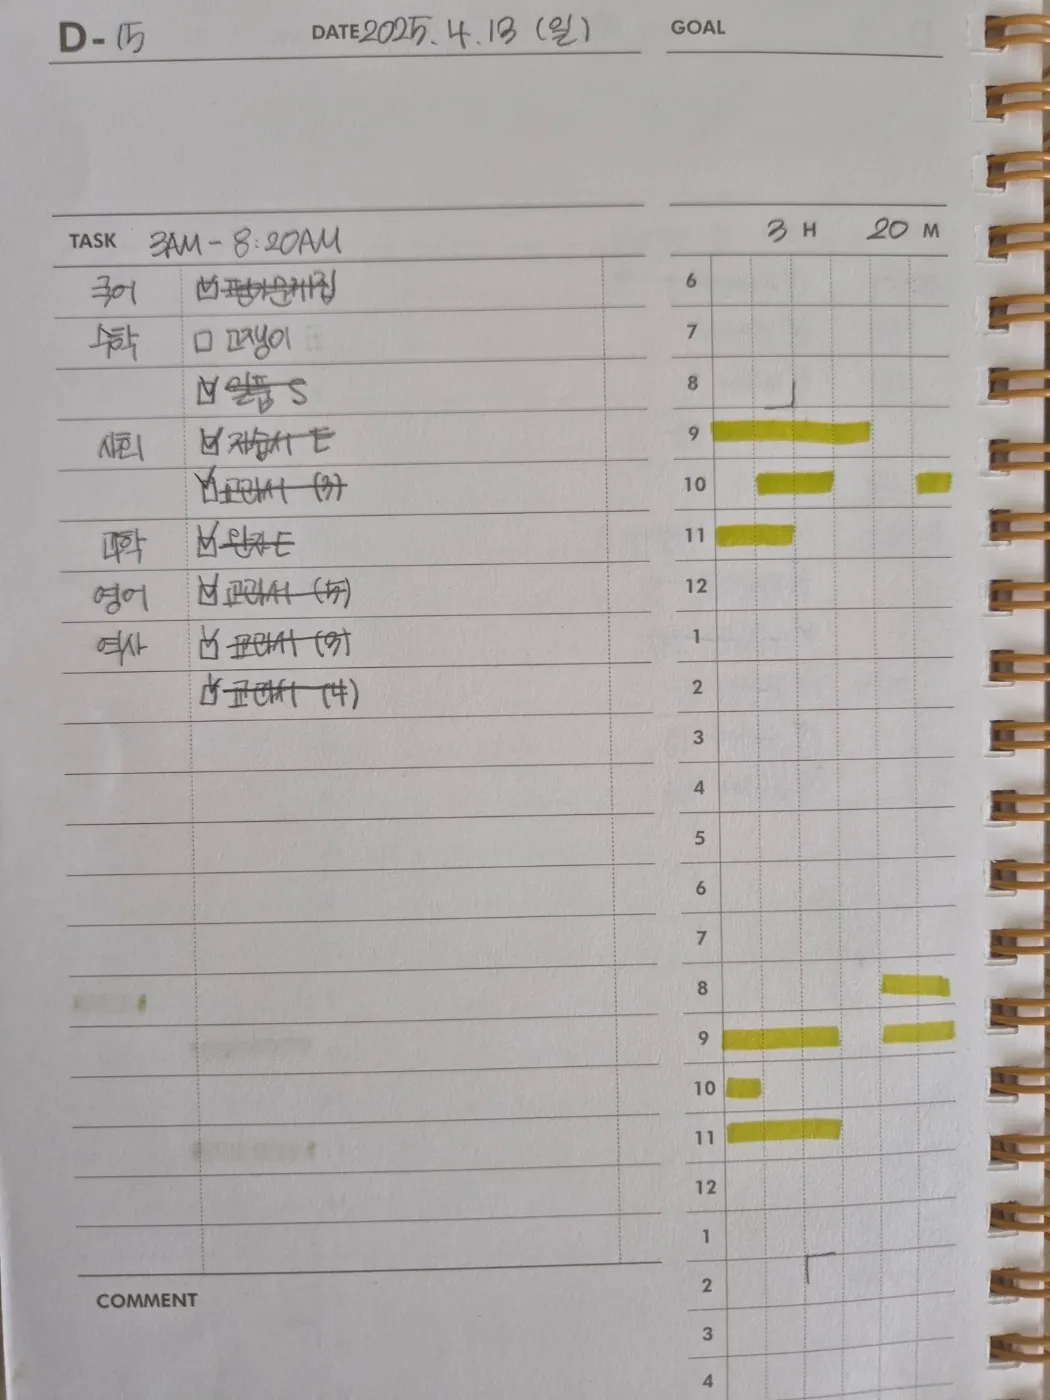 D-15 DATE 2025. 4. 13 (일) GOAL
TASK 3AM - 8:20AM
국어 평가문제집
수학 고쟁이
일품 S
사회 자습서 E
교과서 (3)
과학 완자 E
영어 교과서 (5)
역사 교과서 (3)
교과서 (4)
COMMENT
3 H 20 M
6
7
8
9
10
11
12
1
2
3
4
5
6
7
8
9
10
11
12
1
2
3
4